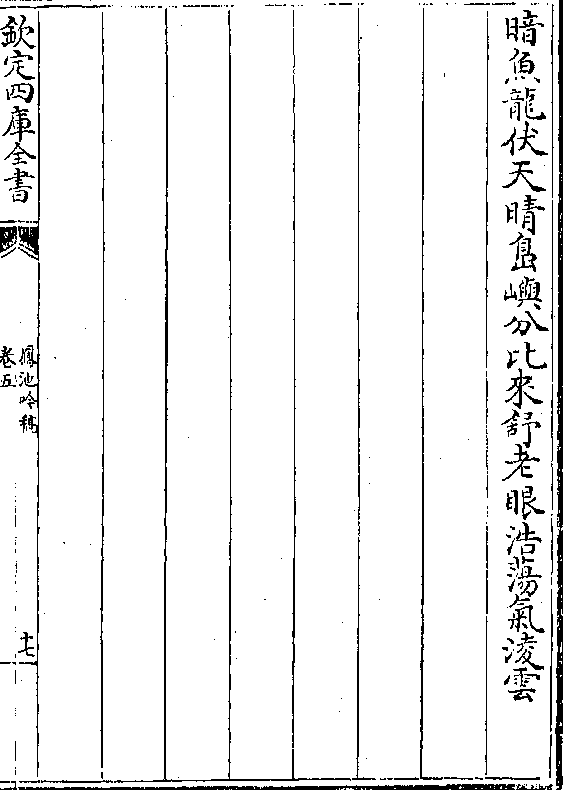 暗魚龍伏天晴島嶼分比來舒老眼浩蕩氣淩雲
欽定四庫全書
鳳池吟稿
卷五
十七